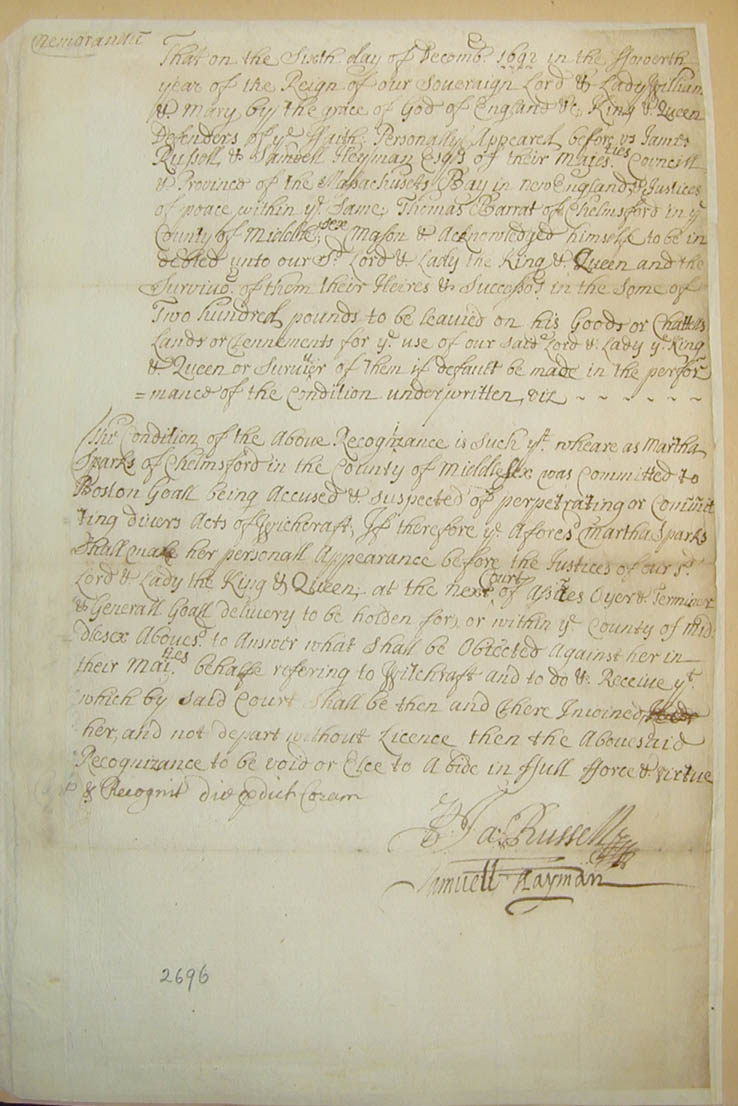 Memorandū
That on the Sixth day of Decemb.r 1692 in the ffowerth
year of the Reign of our Soveraign Lord & Lady William
& Mary by the grace of God of England &c King & Queen
Defenders of ye ffaith; Personally Appeared before vs James
Russell, & Samuell Heyman Esqrs of their Majesties Councill
& Province of the Massachusetts Bay in new England & Justices
of peace within ye Same, Thomas Barrat of Chelmsford in ye
County of Middlesex Mason & Acknowledged himselfe to be in
debted unto our Sd Lord & Lady the King & Queen and the
Survivor of them their Heires & Successors in the Some of
Two hundred pounds to be leavied on his Goods or Chattells
Lands or Tennements for ye use of our said Lord & Lady ye King
& Queen or Surviver of them if default be made in the perfor
=mance of the Condition underwritten, viz ~ ~ ~ ~ ~ ~
The Condition of the Above Recognizance is Such yt wheare as Martha
Sparks of Chelmsford in the County of Middlesex was Committed to
Boston Goall being Accused & suspected of perpetrating or Committ
ting divers Acts of Wichcraft, If therefore ye Aforesd Martha Sparks
Shall make her personall Appearance before the Justices of our sd
Lord & Lady the King & Queen; at the next Court of Assizes Oyer & Terminer
& Generall Goall delivery to be holden for, or within ye County of Mid
dlesex Abovesd to Answer what Shall be Objected Against her in
their Maities behalfe refering to Witchcraft and to do & Receive yt
which by said Court Shall be then and there Injoined
her, and not depart without Licence then the Abovesaid
Recognizance to be void or Elce to Abide in ffull fforce & virtue
& Recognit die prdict Coram
Ja: Russell
Samuell Hayman
2696